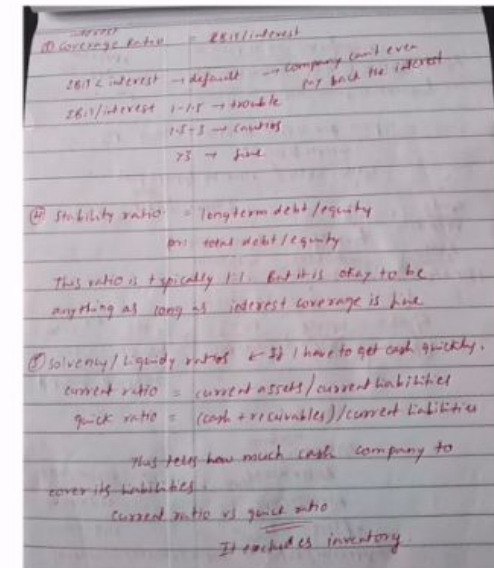 interest
(3) Coverage Ratio = EBIT/interest
EBIT < interest → default → company can't even
pay back the interest
EBIT/interest 1-1.5 → trouble
1.5-3 → caution
>3 → fine
(4) Stability ratio = longterm debt/equity
or: total debt/equity
This ratio is typically 1:1. But it is okay to be
anything as long as interest coverage is fine
(5) Solvency/Liquidy ratios ← If I have to get cash quickly.
current ratio = current assets/current liabilities
quick ratio = (cash + receivables)/current liabilities
This tells how much cash company to
cover its liabilities.
current ratio vs quick ratio
It excludes inventory.